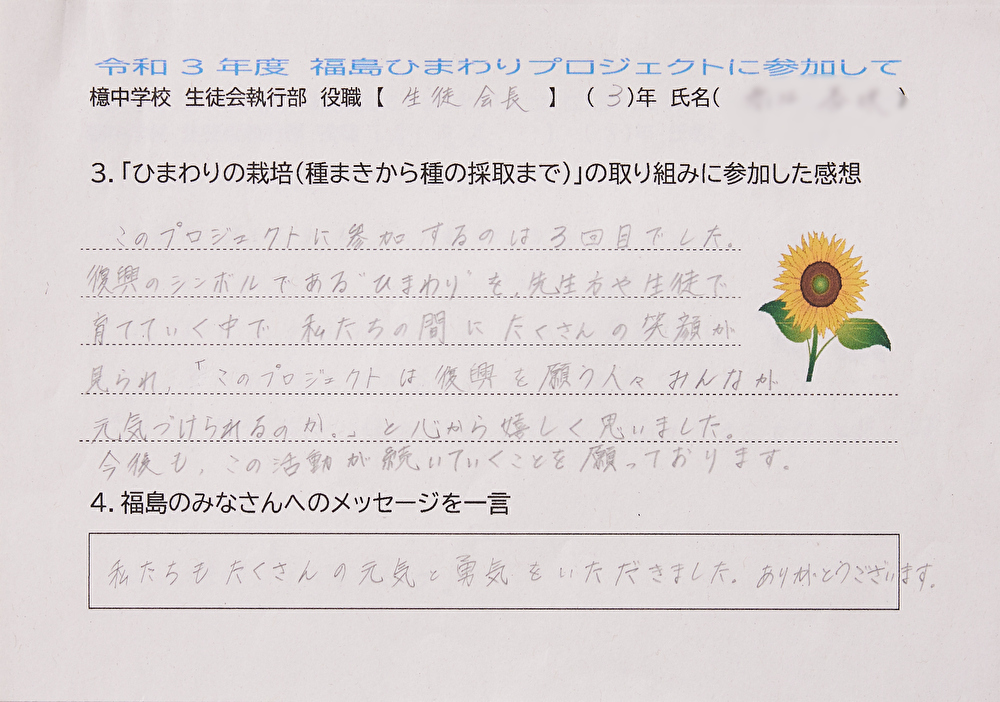 令和3年度 福島ひまわりプロジェクトに参加して
檍中学校 生徒会執行部 役職【 生徒会長 】 (3)年 氏名( )
3.「ひまわりの栽培(種まきから種の採取まで)」の取り組みに参加した感想
このプロジェクトに参加するのは3回目でした。
復興のシンボルである"ひまわり"を、先生方や生徒で
育てていく中で 私たちの間にたくさんの笑顔が
見られ、「このプロジェクトは復興を願う人々みんなが
元気づけられるのか。」と心から嬉しく思いました。
今後も、この活動が続いていくことを願っております。
4.福島のみなさんへのメッセージを一言
私たちもたくさんの元気と勇気をいただきました。ありがとうございます。